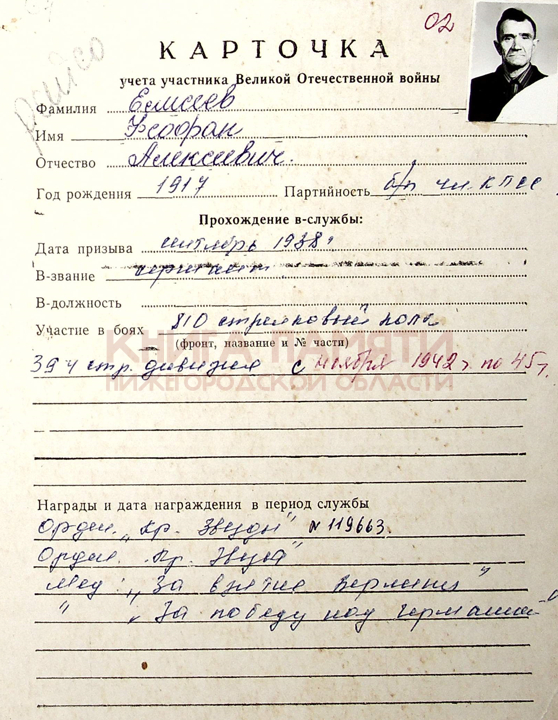 02
КАРТОЧКА
учета участника Великой Отечественной войны
Фамилия Елисеев
Имя Феофан
Отчество Алексеевич.
Год рождения 1917 Партийность б/п чл. КПСС
Прохождение в-службы:
Дата призыва сентябрь 1938 г
В-звание сержант
В-должность
Участие в боях 810 стрелковый полк
(фронт, название и № части)
КНИГА ПАМЯТИ
394 стр. дивизия с ноября 1942 г. по 45 г.
НИЖЕГОРОДСКОЙ ОБЛАСТИ
Награды и дата награждения в период службы
Орден „Кр. Звезды" № 119663.
Орден „Кр. Звезда"
Мед: „За взятие Берлина"
" „За победу над Германией"